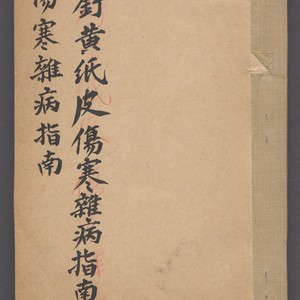 釘黄纸皮傷寒雜病指南
傷寒雜病指南